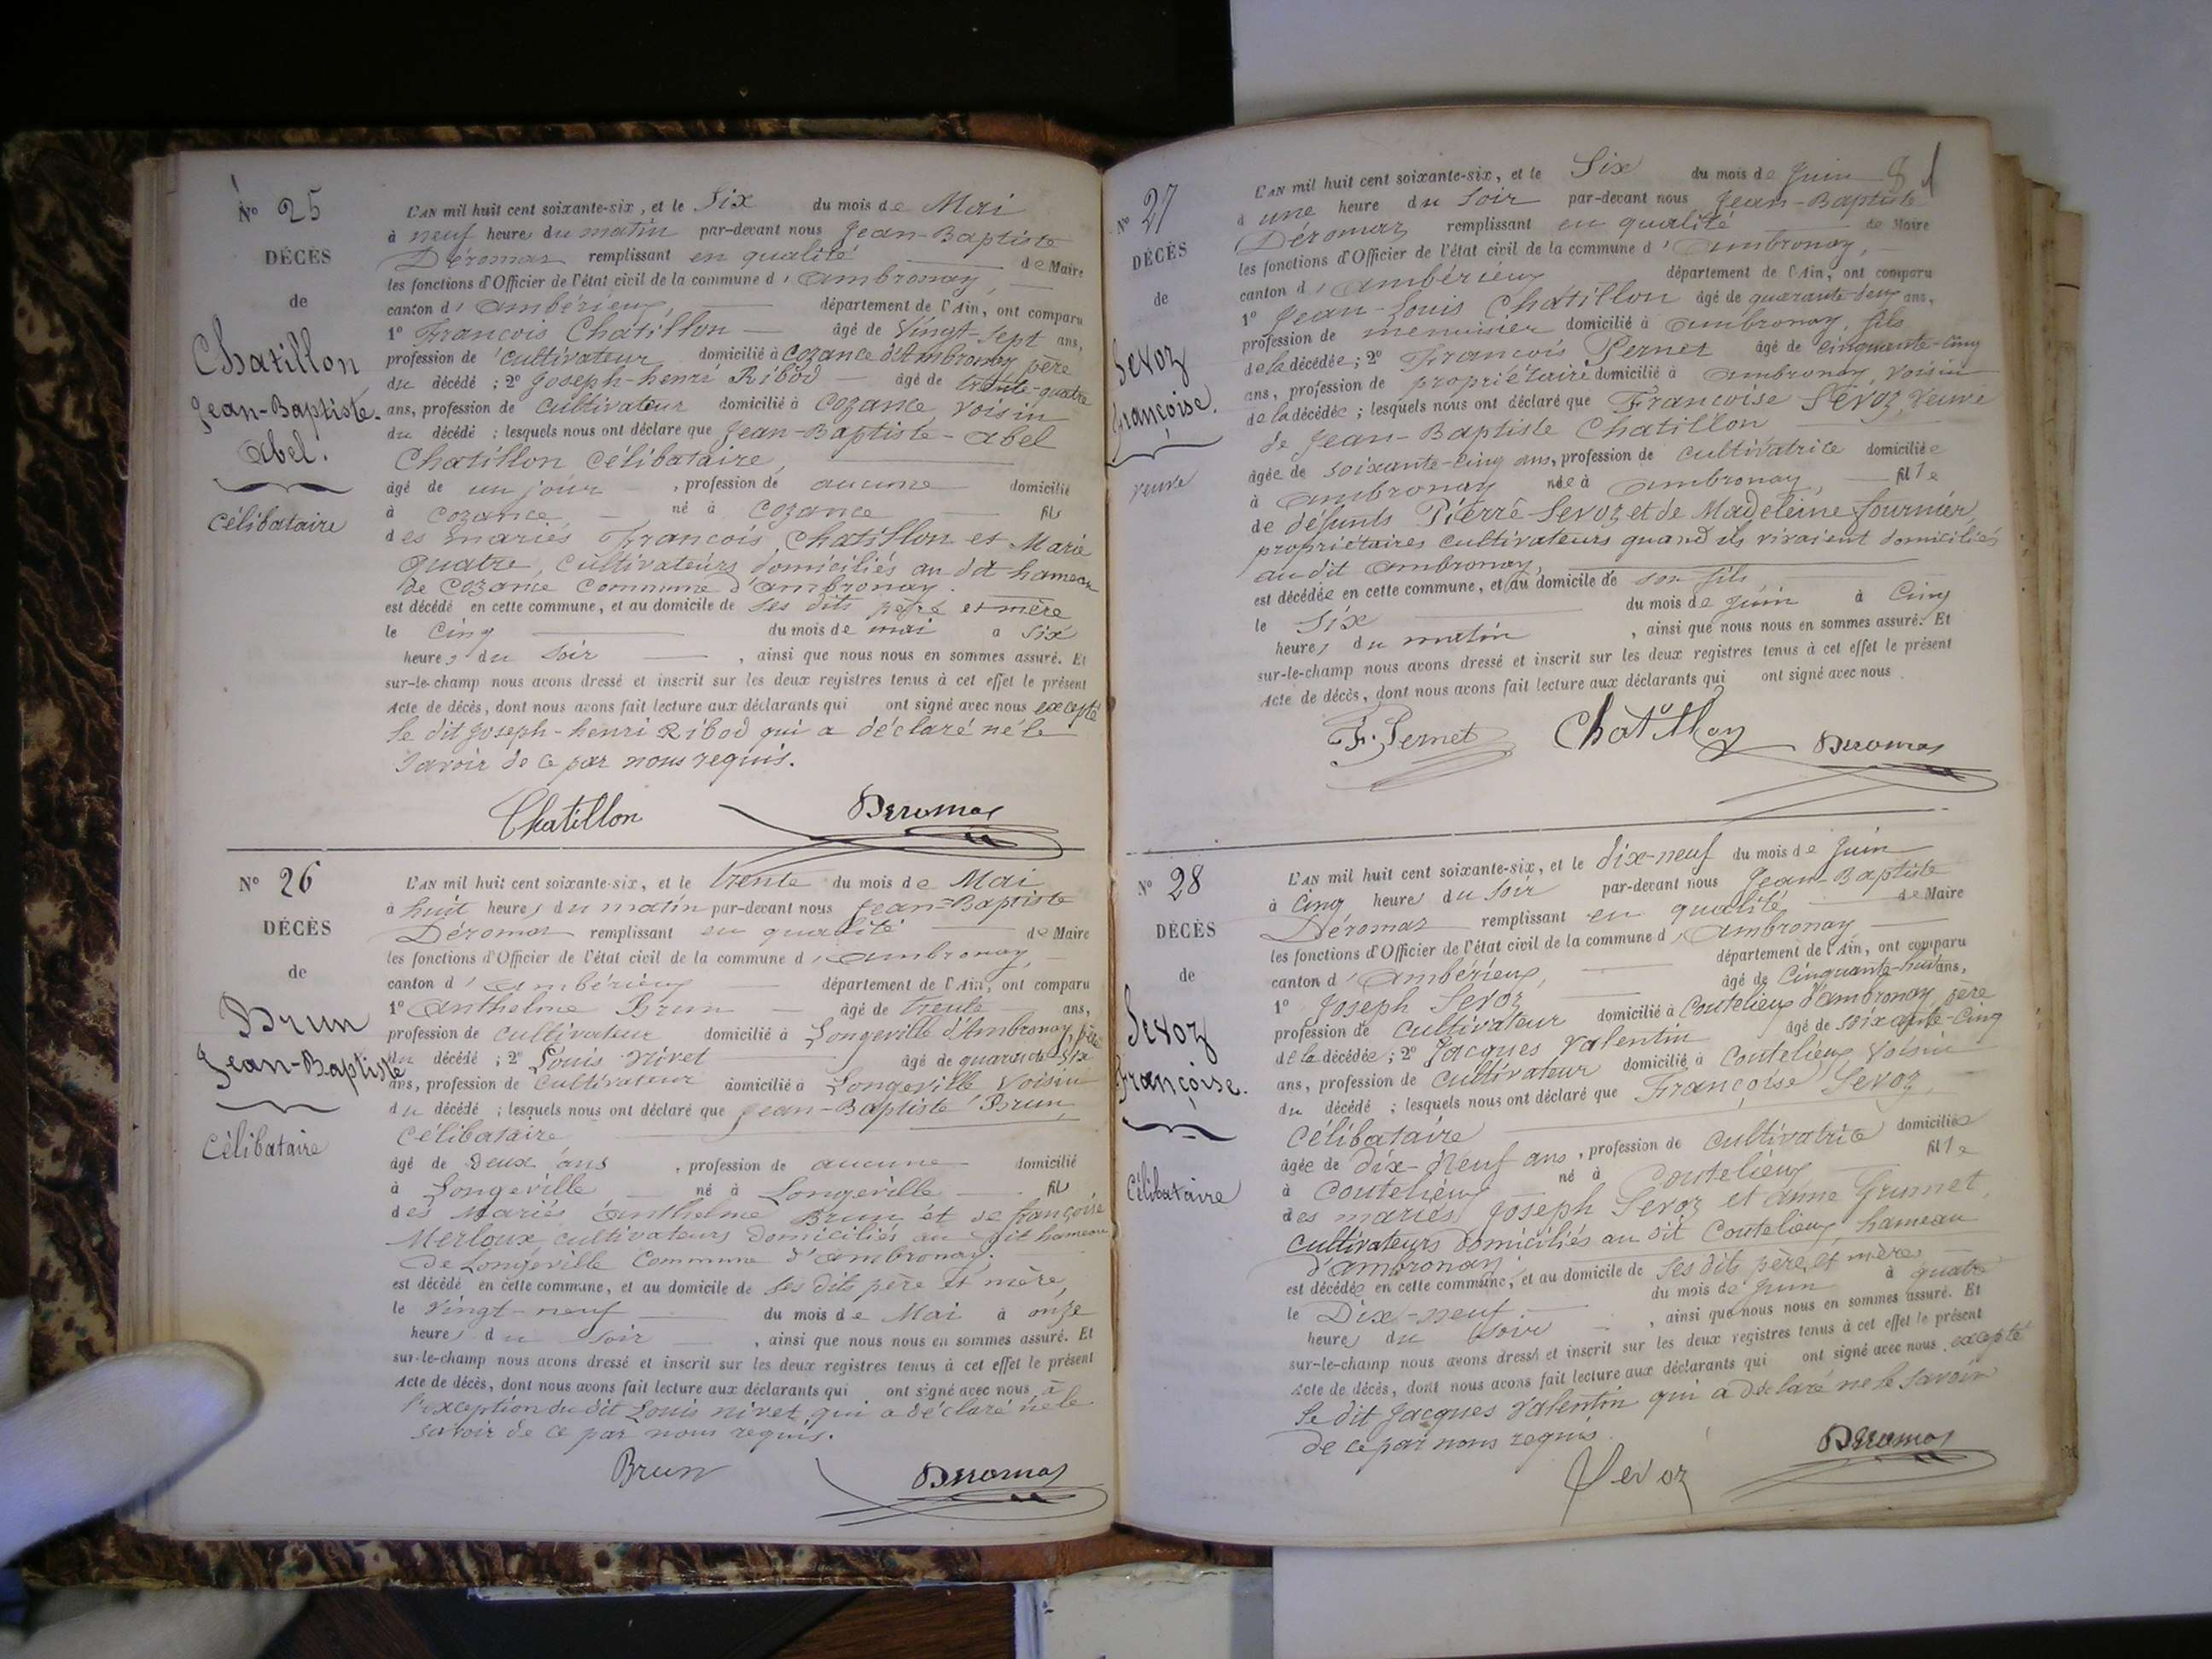 N° 25
DÉCÈS
de
Chatillon
Jean-Baptiste-
Abel.
Célibataire
L'AN mil huit cent soixante-six, et le Six du mois de Mai
à neuf heures du matin par-devant nous Jean-Baptiste
Déromas remplissant en qualité de Maire
les fonctions d'Officier de l'état civil de la commune d'Ambronay,
canton d'Ambérieux, département de l'Ain, ont comparu
1° François Chatillon âgé de Vingt-sept ans,
profession de cultivateur domicilié à Cozance d'Ambronay père
du décédé ; 2° Joseph-henri Ribod âgé de trente-quatre
ans, profession de cultivateur domicilié à Cozance, voisin
du décédé ; lesquels nous ont déclaré que Jean-Baptiste-Abel
Chatillon Célibataire,
âgé de un jour, profession de aucune domicilié
à Cozance né à Cozance fils
des mariés François Chatillon et Marie
Quatre, Cultivateurs domiciliés au dit hameau
de Cozance Commune d'Ambronay.
est décédé en cette commune, et au domicile de ses dits père et mère
le Cinq du mois de mai à Six
heures du Soir, ainsi que nous nous en sommes assuré. Et
sur-le-champ nous avons dressé et inscrit sur les deux registres tenus à cet effet le présent
Acte de décès, dont nous avons fait lecture aux déclarants qui ont signé avec nous excepté
le dit Joseph-henri Ribod qui a déclaré ne le
savoir de ce par nous requis.
Chatillon Deromas
N° 26
DÉCÈS
de
Brun
Jean-Baptiste
Célibataire
L'AN mil huit cent soixante-six, et le trente du mois de Mai
à huit heures du matin par-devant nous Jean-Baptiste
Déromas remplissant en qualité de Maire
les fonctions d'Officier de l'état civil de la commune d'Ambronay,
canton d'Ambérieux département de l'Ain, ont comparu
1° Anthelme Brun âgé de trente ans,
profession de cultivateur domicilié à Longeville d'Ambronay, père
du décédé ; 2° Louis Nivet âgé de quarante-Six
ans, profession de Cultivateur domicilié à Longeville Voisin
du décédé ; lesquels nous ont déclaré que Jean-Baptiste Brun,
Célibataire
âgé de Deux ans, profession de aucune domicilié
à Longeville né à Longeville fils
des Mariés Anthelme Brun et de françoise
Merloux cultivateurs domiciliés au dit hameau
de Longeville Commune d'Ambronay.
est décédé en cette commune, et au domicile de ses dits père et mère,
le Vingt-neuf du mois de Mai à onze
heures du soir, ainsi que nous nous en sommes assuré. Et
sur-le-champ nous avons dressé et inscrit sur les deux registres tenus à cet effet le présent
Acte de décès, dont nous avons fait lecture aux déclarants qui ont signé avec nous à
l'exception du dit Louis nivet qui a déclaré ne le
savoir de ce par nous requis.
Brun Deromas
N° 27
DÉCÈS
de
Sevoz
Françoise.
veuve
L'AN mil huit cent soixante-six, et le Six du mois de Juin 8
à une heure du Soir par-devant nous Jean-Baptiste
Déromas remplissant en qualité de Maire
les fonctions d'Officier de l'état civil de la commune d'Ambronay,
canton d'Ambérieux département de l'Ain, ont comparu
1° Jean-Louis Chatillon âgé de quarante-deux ans,
profession de menuisier domicilié à Ambronay, fils
de la décédée ; 2° François Pernet âgé de cinquante-cinq
ans, profession de propriétaire domicilié à Ambronay, voisin
de la décédée ; lesquels nous ont déclaré que Françoise Sevoz, Veuve
de Jean-Baptiste Chatillon
âgée de soixante-cinq ans, profession de cultivatrice domiciliée
à Ambronay née à Ambronay, fille
de défunts Pierre Sevoz et de Madeleine fournier,
propriétaires cultivateurs quand ils vivaient domiciliés
au dit Ambronay,
est décédée en cette commune, et au domicile de son fils
le Six du mois de Juin à Cinq
heures du matin, ainsi que nous nous en sommes assuré. Et
sur-le-champ nous avons dressé et inscrit sur les deux registres tenus à cet effet le présent
Acte de décès, dont nous avons fait lecture aux déclarants qui ont signé avec nous.
F. Pernet Chatillon Deromas
N° 28
DÉCÈS
de
Sevoz
Françoise.
Célibataire
L'AN mil huit cent soixante-six, et le dix-neuf du mois de Juin
à Cinq heures du soir par-devant nous Jean-Baptiste
Déromas remplissant en qualité de Maire
les fonctions d'Officier de l'état civil de la commune d'Ambronay
canton d'Ambérieux, département de l'Ain, ont comparu
1° Joseph Sevoz âgé de Cinquante-huit ans,
profession de Cultivateur domicilié à Coutelieux d'Ambronay père
de la décédée ; 2° Jacques Valentin âgé de soixante-Cinq
ans, profession de Cultivateur domicilié à Coutelieux Voisin
du décédé ; lesquels nous ont déclaré que Françoise Sevoz,
Célibataire
âgée de dix-neuf ans, profession de cultivatrice domiciliée
à Coutelieux né à Coutelieux fille
des mariés Joseph Sevoz et Anne Grumet,
Cultivateurs domiciliés au dit Coutelieux, hameau
d'Ambronay.
est décédée en cette commune, et au domicile de ses dits père et mère
le Dix-neuf du mois de Juin à quatre
heures du Soir, ainsi que nous nous en sommes assuré. Et
sur-le-champ nous avons dressé et inscrit sur les deux registres tenus à cet effet le présent
Acte de décès, dont nous avons fait lecture aux déclarants qui ont signé avec nous excepté
le dit Jacques Valentin qui a déclaré ne le savoir
de ce par nous requis.
Sevoz Deromas